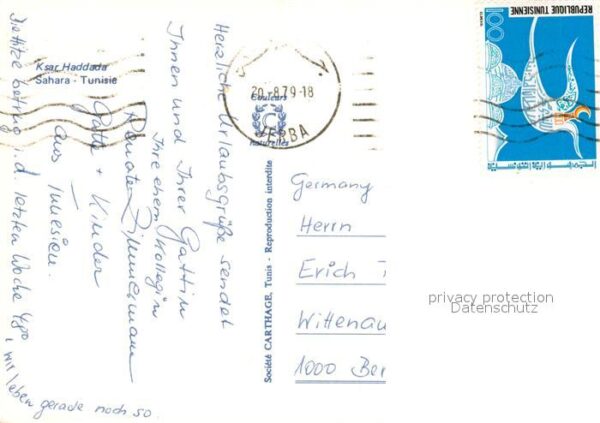 Ksar Haddada
Sahara - Tunisie
Herzliche Urlaubsgrüße sendet
Ihnen und Ihrer Gattin
Ihre ehem. Kollegin
Renate Zimmermann
Gatte + Kinder
aus Tunesien.
Die Hitze betrug i. d. letzten Woche 48°,
wir leben gerade noch so.
Société CARTHAGE, Tunis - Reproduction interdite
Couleurs
C
naturelles
20 -8 79 - 18
JERBA
REPUBLIQUE TUNISIENNE
100
Germany
Herrn
Erich
Wittenau
1000 Ber
privacy protection
Datenschutz